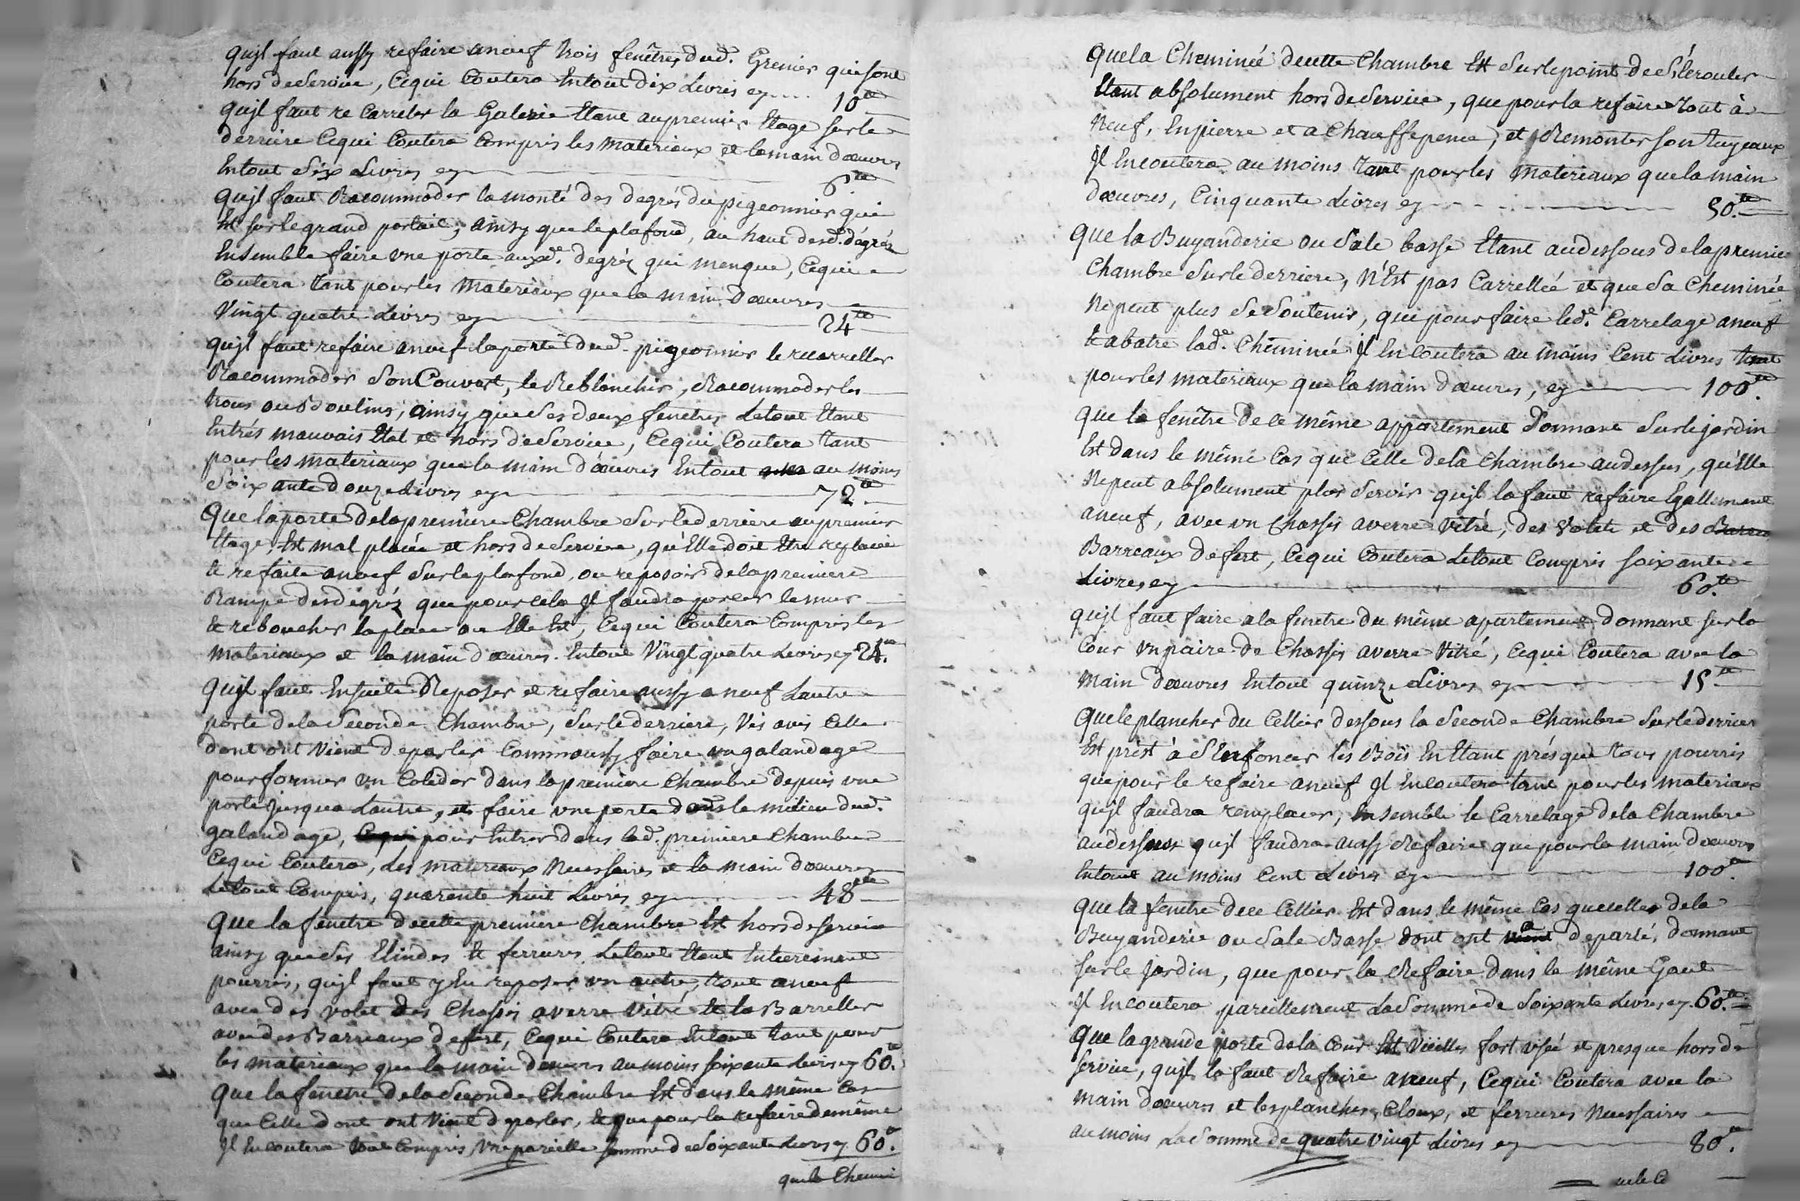 qu'jl faut aussy refaire aneuf trois fenêtres dud. Grenier qui sont
hors de Service, Cequi Coutera Entout dix Livres cy .... 10.tt
qu'jl faut re Carreler la Galerie Etant aupremier Etage surle
derriere Cequi Coutera Compris les materiaux et lamain d'œuvres
Entout Six Livres cy 6.tt
qu'jl faut Racommoder la monté des degrés du pigeonnier qui
Est surle grand portail, ainsy que leplafond, au haut desd. dégréz
Ensemble faire vne porte auxd. degréz qui menque, Cequi
Coutera tant pourles materiaux que la main d'œuvres
Vingt quatre Livres cy 24.tt
qu'jl faut refaire aneuf laporte dud. pigeonnier le recarreller
Racommoder Son Couvert, le Reblanchir, Racommoder les
trous ou Boulins, ainsy que Ses deux fenetres Letout Etant
Entrés mauvais Etat et hors de Service, Cequi Coutera tant
pour les materiaux que la main d'œuvres Entout au moins
Soixante douze Livres cy 72.tt
Que laporte delapremiere Chambre Sur le derriere aupremier
Etage, Est mal placée et hors de Service, qu'Elle doit Etre replacée
& refaite aneuf Surleplafond, ou reposoir delapremiere
Rampe desdégréz que pour cela Jl faudra percer lemur
& reboucher laplace ou Elle Est, Cequi Coutera Compris les
Materiaux et la main d'œuvres Entout Vingt quatre Livres cy 24.tt
Qu'jl faut Ensuite Reposer et refaire aussy aneuf Lautre
porte dela Seconde Chambre, Sur lederriere, Vis avis Celle
dont ont Vient deparler Comm'aussy faire vn galandage
pour former vn Colidor dans lapremiere Chambre depuis vne
porte Jusqua Lautre, et faire vne porte dans le milieu dud.
galandage, pour Entrer dans lad. premiere Chambre
Cequi Coutera, Les materiaux Necessaires et la main d'œuvres
Letout Compris, quarente huit Livres cy 48.tt
Que la fenêtre decette premiere Chambre Est hors de service
ainsy que Ses Elindes & ferrures Letout Etant Entierement
pourris, qu'jl faut y En reposer vn autre, tout aneuf
avec des volet des Chassis averre Vitré & la Barreller
avec des Barreaux defert, Cequi Coutera Entout tant pour
les materiaux que la main d'œuvres aumoins soixante Livres cy 60.tt
Que la fenetre dela Seconde Chambre Est dans le même Cas
que Celle dont ont Vient d'parler, & que pour la Refaire demême
Jl En coutera tout Compris Vne pareille somme de Soixante Livres cy 60.tt
que la Chemi
Quela Cheminée decette Chambre Est Surlepoint de S'Ecrouler
Etant absolument hors de Service, que pour la refaire tout à
Neuf, En pierre et a Chauffepence, et Remonter son tuyeaux
Jl Encoutera au moins tant pour les Materiaux quela main
d'œuvres, Cinquante Livres cy 50.tt
Que la Buyanderie ou Sale basse Etant au dessous dela premiere
Chambre Sur le derriere, N'Est pas Carrellée et que Sa Cheminée
Nepeut plus Se Soutenir, que pour faire led. Carrelage aneuf
& abatre lad. Cheminée Jl En coutera au moins Cent Livres tant
pour les materiaux que la main d'œuvres, cy 100.tt
Que la fenêtre de le même appartement donnant Surle jardin
Est dans le même Cas que Celle dela Chambre audessus, qu'Elle
Nepeut absolument plus Servir qu'jl la faut refaire Egallement
aneuf, avec vn Chassis averre Vitré, des Volets et des
Barreaux de fert, Cequi Coutera Letout Compris soixante
Livres cy 60.tt
qu'jl faut faire ala fenetre du même apartement donnant surla
Cour vn paire de Chassis averre Vitré, Cequi Coutera avec la
Main d'œuvres Entout quinze Livres cy 15.tt
Que le plancher du Cellier dessous la Seconde Chambre Surle derrier
Est prést à S'Enfoncer les Bois En Etant présque tous pourris
que pour le refaire aneuf Jl Encoutera tant pour les materiaux
qu'jl faudra remplacer, Ensemble le Carrelage dela Chambre
au dessus qu'jl faudra aussy Refaire que pour la main d'œuvres
Entout au moins Cent Livres cy 100.tt
Que la fenetre dece Cellier Est dans le même Cas que celles dela
Buyanderie ou Sale Basse dont ont a deparlé, donnant
sur le Jardin, que pour la Refaire dans le même Gout
Jl Encoutera pareillement La Somme de Soixante Livres cy 60.tt
Que la grande porte dela Cour Est Vieille fort vsée et presque hors de
service, qu'jl la faut Refaire aneuf, Cequi Coutera avec la
main d'œuvres et les planches, Cloux, et ferrures Necessaires
au moins La Somme de quatre vingt Livres cy 80.tt